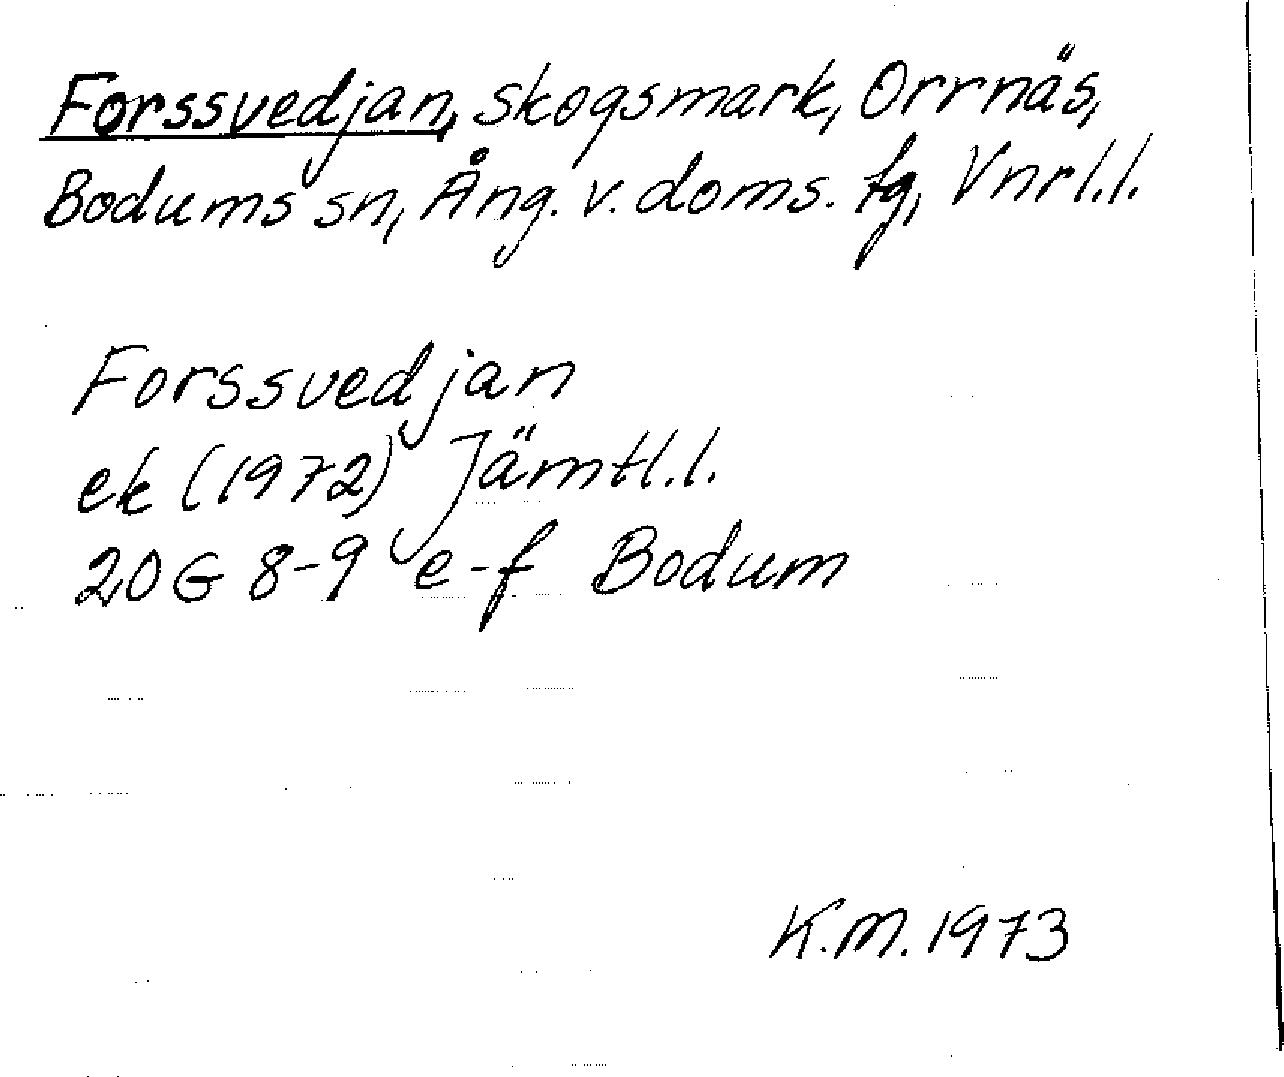 Forssvedjan, skogsmark, Orrnäs,
Bodums sn, Ång. v. doms. fg, Vnrl.l.
Forssvedjan
ek (1972) Jämtl.l.
20G 8-9 e-f Bodum
K.M. 1973